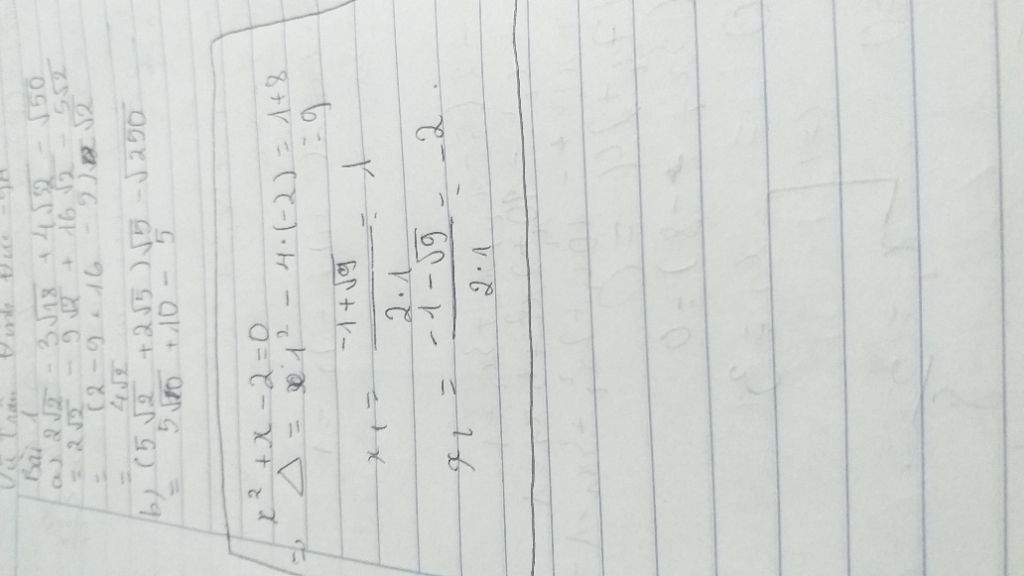 Bài 1
a) 2√2 - 3√18 + 4√32 - √50
= 2√2 - 9√2 + 16√2 - 5√2
= (2 - 9 + 16 - 5)√2
= 4√2
b) (5√2 + 2√5)√5 - √250
= 5√10 + 10 - 5
x² + x - 2 = 0
=> Δ = 1² - 4·(-2) = 1+8
= 9
x₁ = -1+√9 / 2·1 = 1
x₂ = -1-√9 / 2·1 = -2.